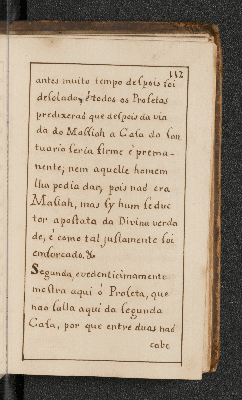 112
antes muito tempo despois foi
desolado, é todos os Profetas
predixeraõ que despois da via
da do Massiah a Casa do San
tuario seria firme é prema-
nente; nem aquelle homem
lha podia dar, pois naõ era
Masiah, mas sy hum seduc
tor apostata da Divina verda
de, é como tal justamente foi
emforcado, &
Segunda, evedentiçimamente
mostra aqui ó Profeta, que
naõ falla aqui da segunda
Casa, por que entre duas naõ
cabe